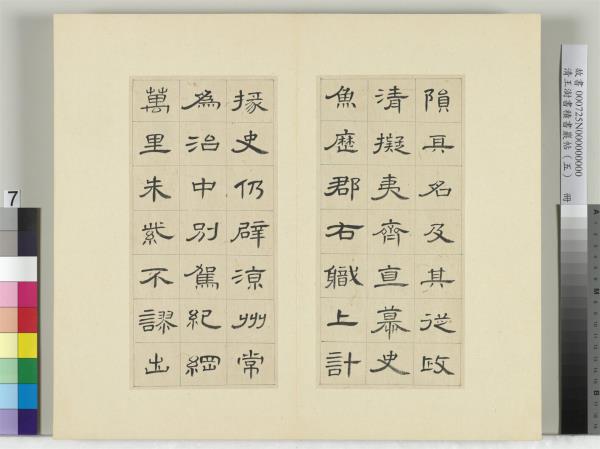 隕其名及其從政
清擬夷齊直慕史
魚歷郡右職上計
掾史仍辟涼州常
為治中別駕紀綱
萬里朱紫不謬出
故書 000725N000000000
清王澍書積書巖帖（五） 冊
7
A
M
B